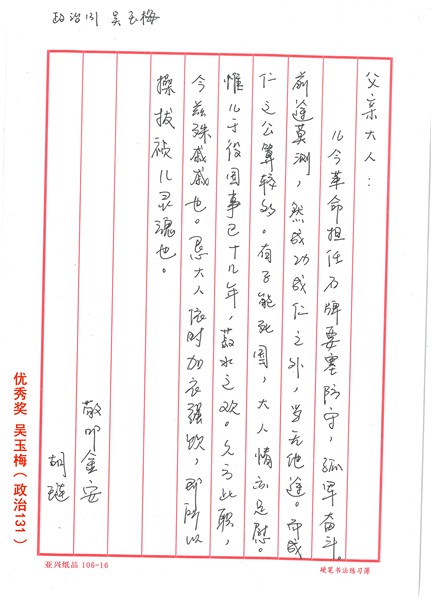 政治131 吴玉梅
父亲大人：
儿今革命担任石牌要塞防守，孤军奋斗。
前途莫测，然成功成仁之外，当无他途。而成
仁之公算较多。有子能死国，大人情亦足慰。
惟儿于役国事已十几年，菽水之欢。久亏此职，
今兹殊戚戚也。恳大人依时加衣强饮，即所以
操拔祯儿灵魂也。
敬叩金安
胡琏
优秀奖 吴玉梅（政治131）
亚兴纸品 106-16
硬笔书法练习簿